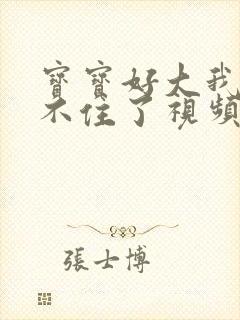 寶寶好大我
不住了視頻
張士博